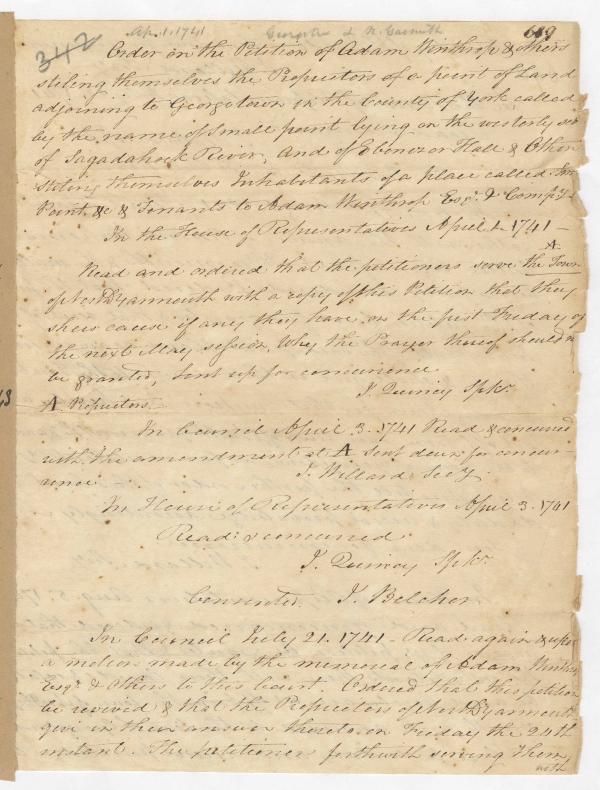 Ap. 1. 1741
342
619
Order on the Petition of Adam Winthrop & others
stiling themselves the Propritors of a point of Land
adjoining to Georgetown in the County of York called
by the name of Small point lying on the westerly side
of Sagadahock River, And of Ebenezer Hall & Others
stiling themselves Inhabitants of a place called Sm
Point, &c & Tenants to Adam Winthrop Esqr. & Compy.
In the House of Representatives April 1. 1741 —
A
Read and ordered that the petitioners serve the Town
of North Yarmouth with a copy of this Petition that they
shew cause if any they have, on the first Friday of
the next May session, Why the Prayer thereof should n
be granted, Sent up for concurrence
J. Quincy Spkr.
A Propritors
In Council April 3. 1741 Read & concurred
with the amendment at A Sent down for concur-
rence
J. Willard Secy.
In House of Representatives April 3. 1741
Read & concurred
J. Quincy Spkr.
Consented, J. Belcher
In Council July 21. 1741 – Read again & upon
a motion made by the memorial of Adam Winthr
Esqr. & Others to this Court. Ordered that this petition
be revived & that the Propritors of North Yarmouth
give in their answer thereto on Friday the 24th
instant. The petitioners forthwith serving them
with